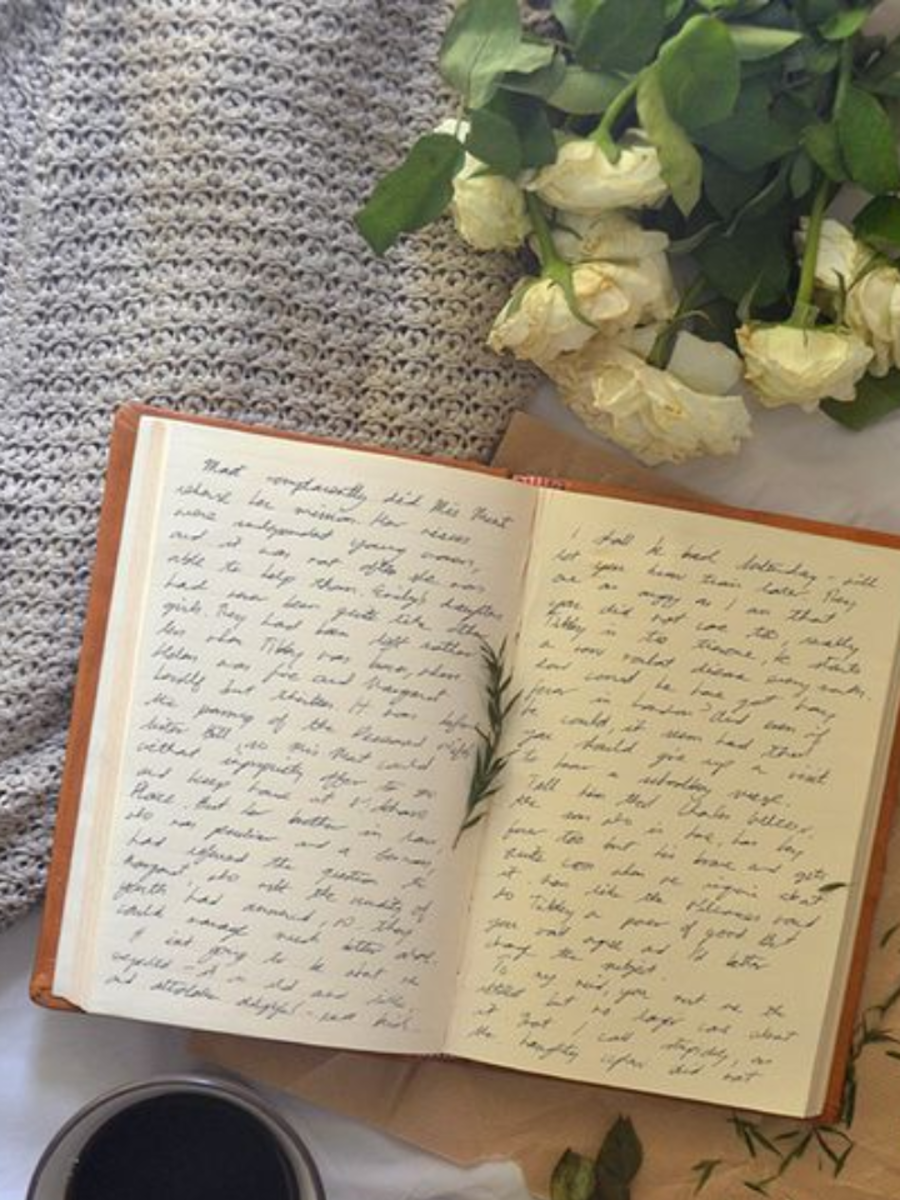 Most complacently did Mrs Munt
rehearse her mission. Her nieces
were independent young women,
and it was not often she was
able to help them. Emily's daughters
had never been quite like other
girls. They had been left
when Tibby was born, when
Helen was five and Margaret
herself but thirteen. It was before
the passing of the Deceased Wife's
Sister Bill, so Mrs Munt could
without impropriety offer to go
and keep house at Wickham
Place. But her brother in law
who was peculiar and a German,
had referred the question to
Margaret who with the crudity of
youth had answered, No, they
could manage much better alone.
I isnt going to be what we
expected - it is old and little
and altogether delightful - red brick
I shall be back Saturday - will
let you know train later. They
are as angry as I am that
you did not come too, really
Tibby is too tiresome, he starts
a new mortal disease every month.
How could he have got hay
fever in London? And even if
he could, it seems hard that
you should give up a visit
to hear a schoolboy sneeze.
Tell him that Charles Wilcox,
the son who is here, has hay
fever too but his brave and gets
quite cross when we inquire about
it. Men like the Wilcoxes would
do Tibby a power of good. But
you wont agree and Id better
change the subject.
To my mind, you
but no longer care about
it that I call stupidly, or
the naughty did not